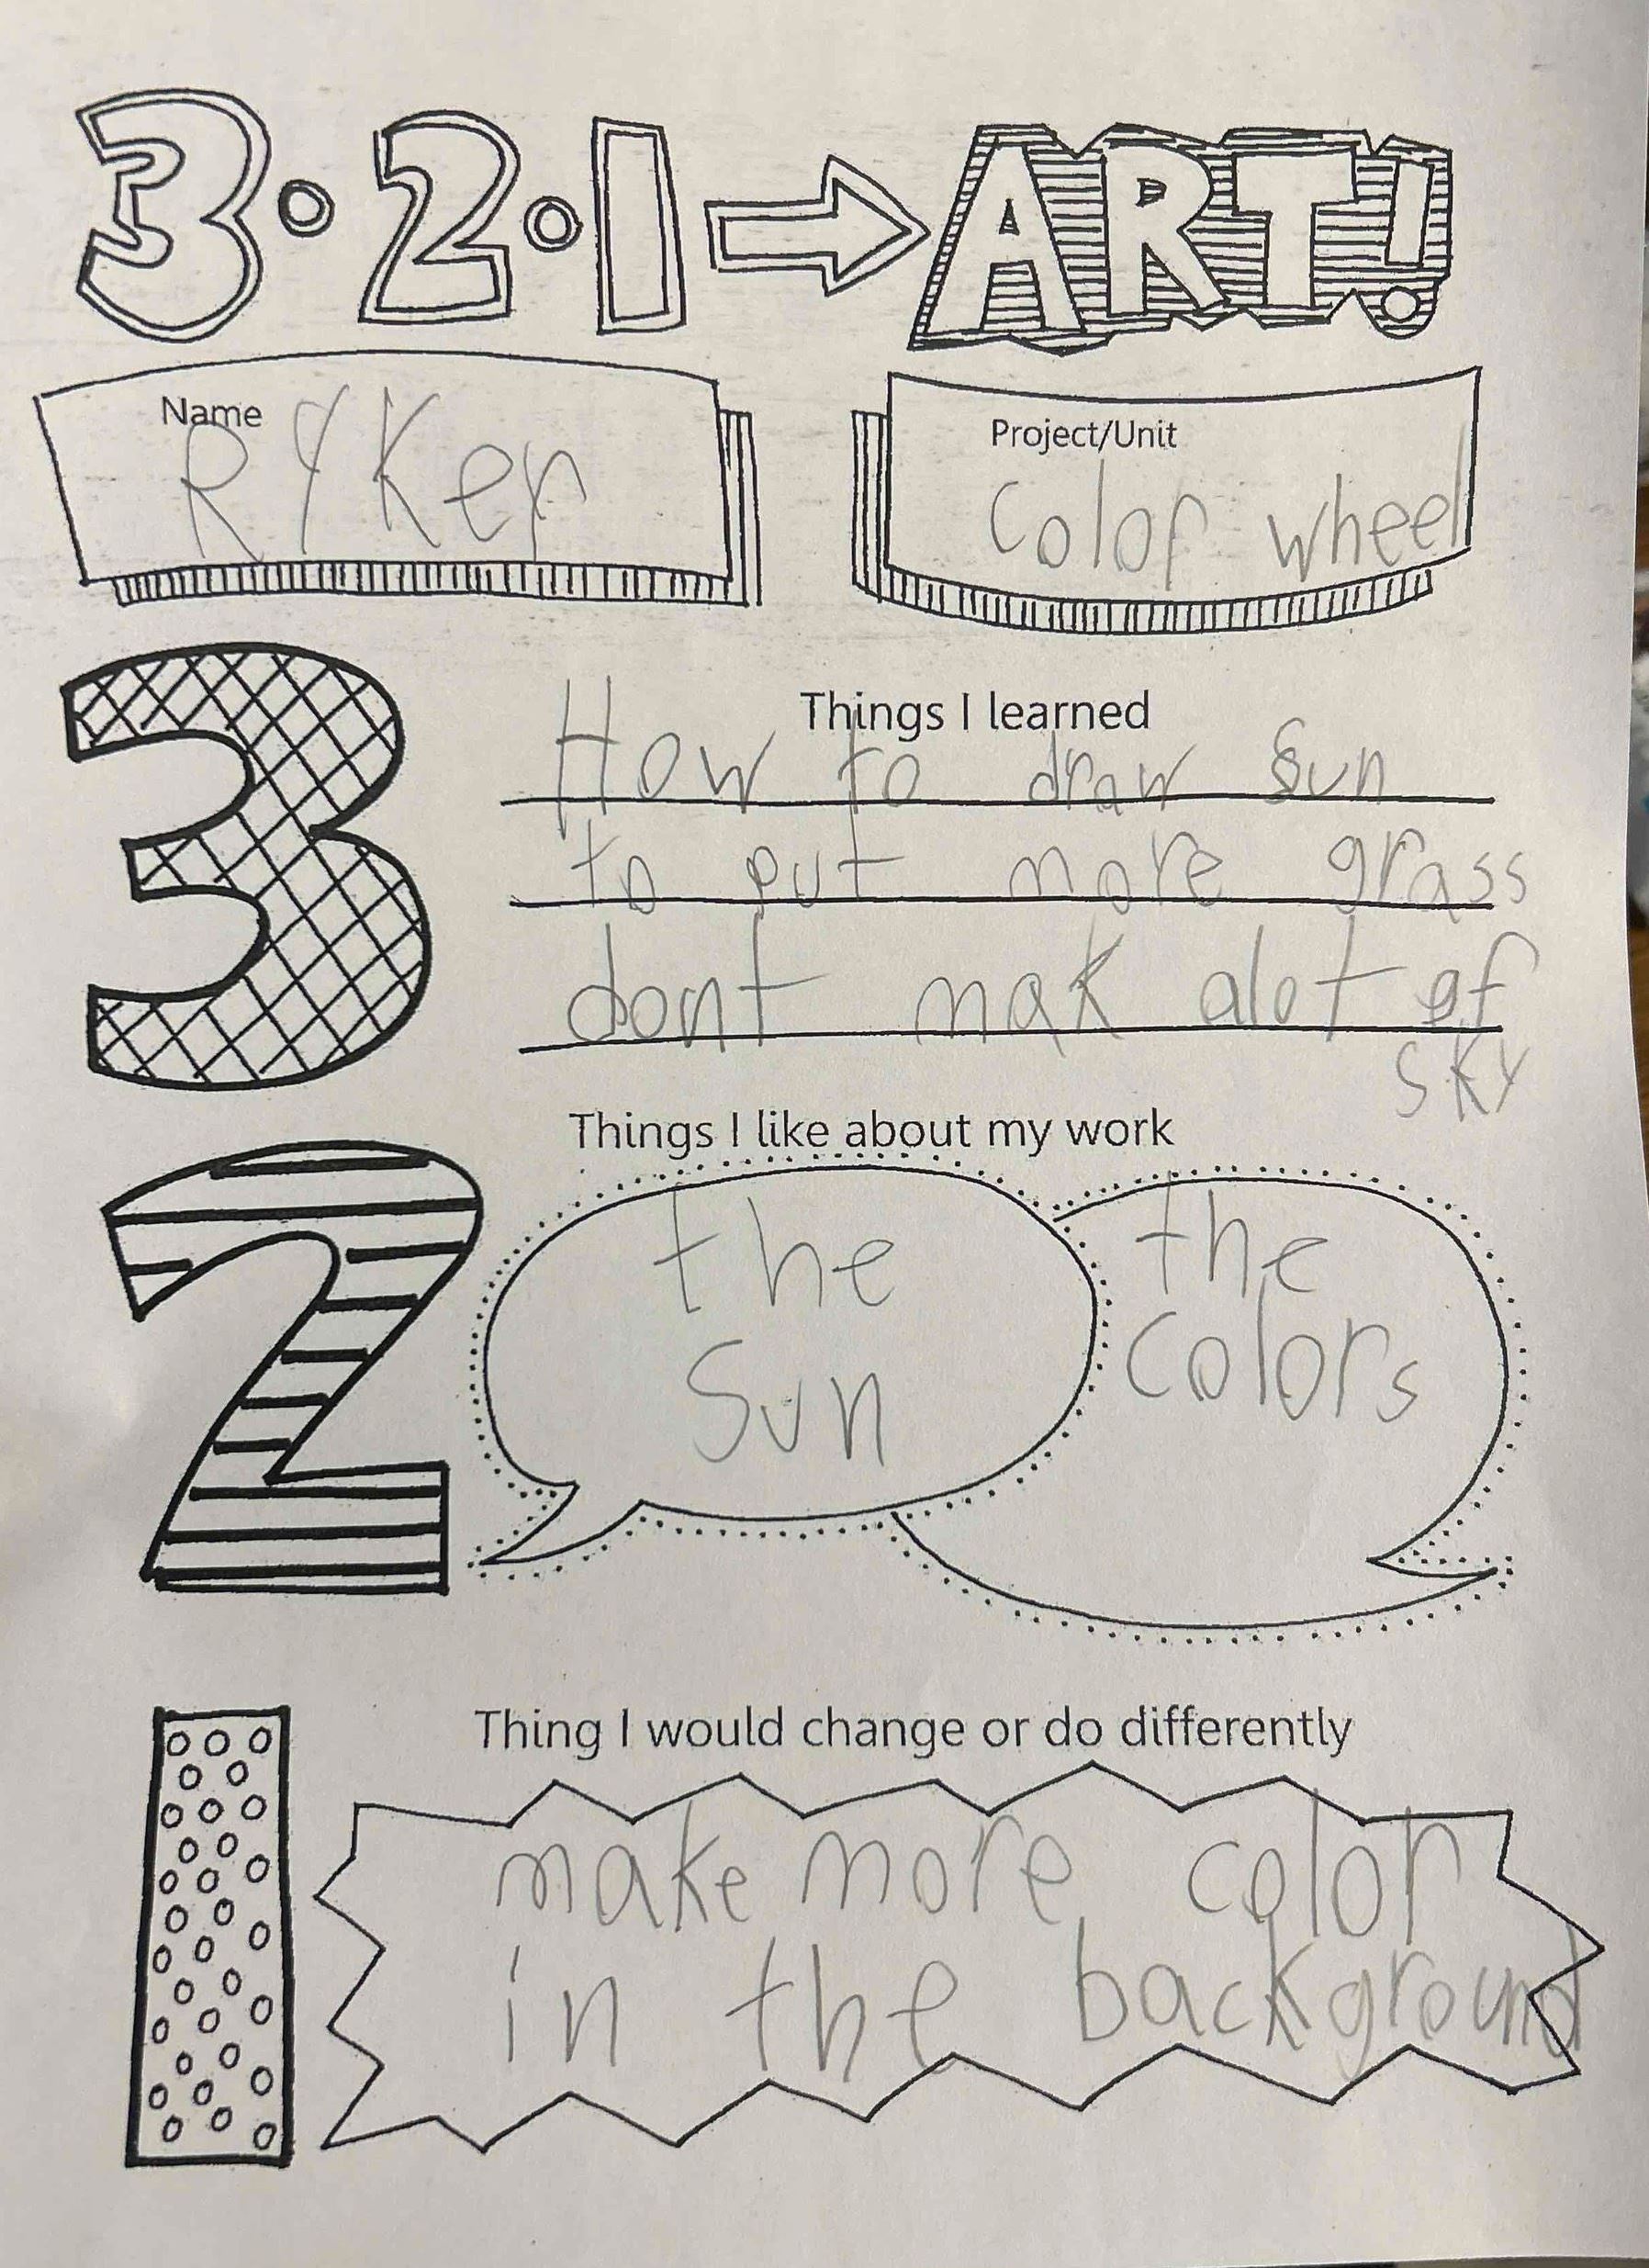 3·2·1→ART!
Name
RYKer
Project/Unit
Color wheel
3
Things I learned
How to draw Sun
to put more grass
dont mak alot of
sky
Things I like about my work
2
the
Sun
the
colors
1
Thing I would change or do differently
make more color
in the background